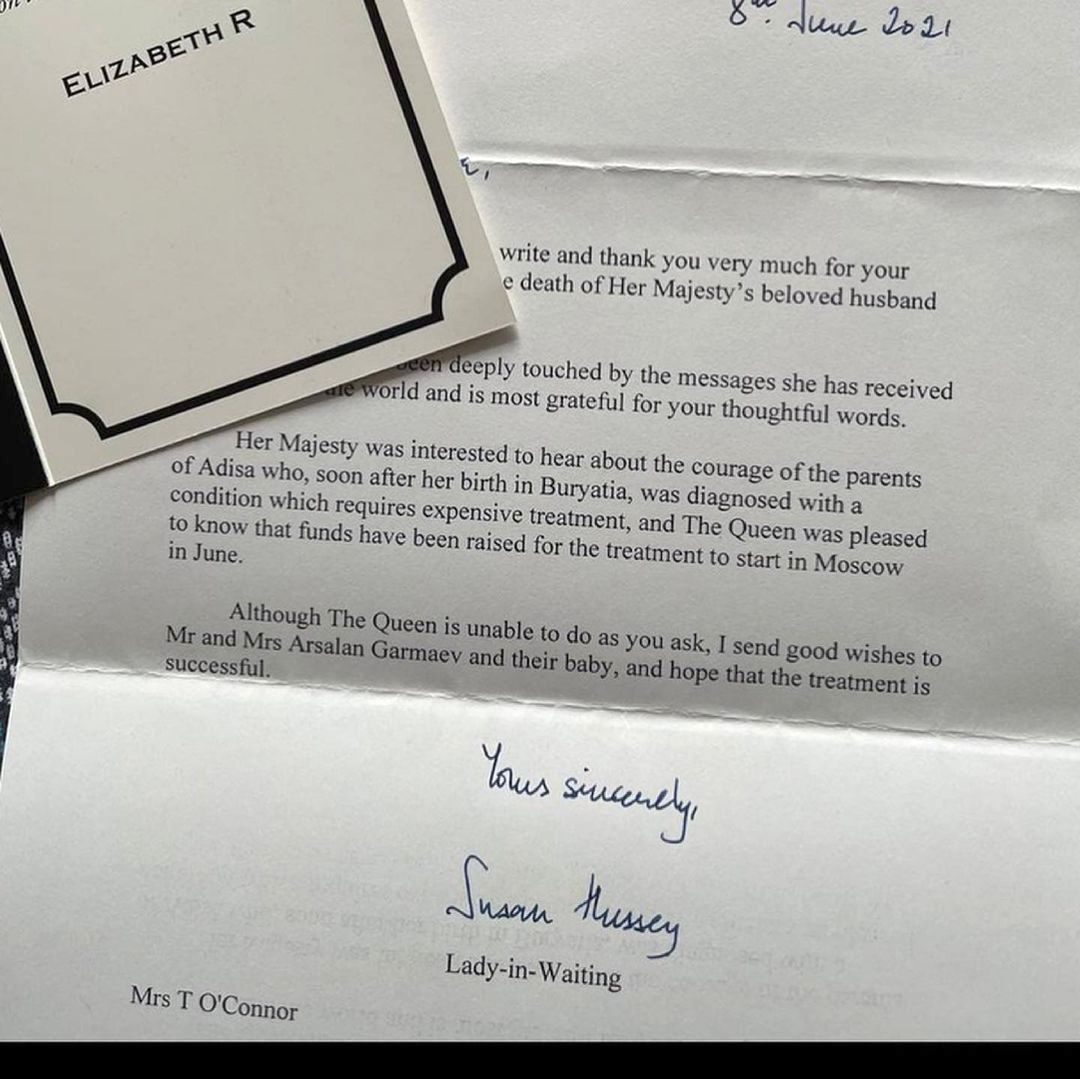 ELIZABETH R
8th. June 2021
write and thank you very much for your
e death of Her Majesty's beloved husband
been deeply touched by the messages she has received
the world and is most grateful for your thoughtful words.
Her Majesty was interested to hear about the courage of the parents
of Adisa who, soon after her birth in Buryatia, was diagnosed with a
condition which requires expensive treatment, and The Queen was pleased
to know that funds have been raised for the treatment to start in Moscow
in June.
Although The Queen is unable to do as you ask, I send good wishes to
Mr and Mrs Arsalan Garmaev and their baby, and hope that the treatment is
successful.
Yours sincerely,
Susan Hussey
Lady-in-Waiting
Mrs T O'Connor